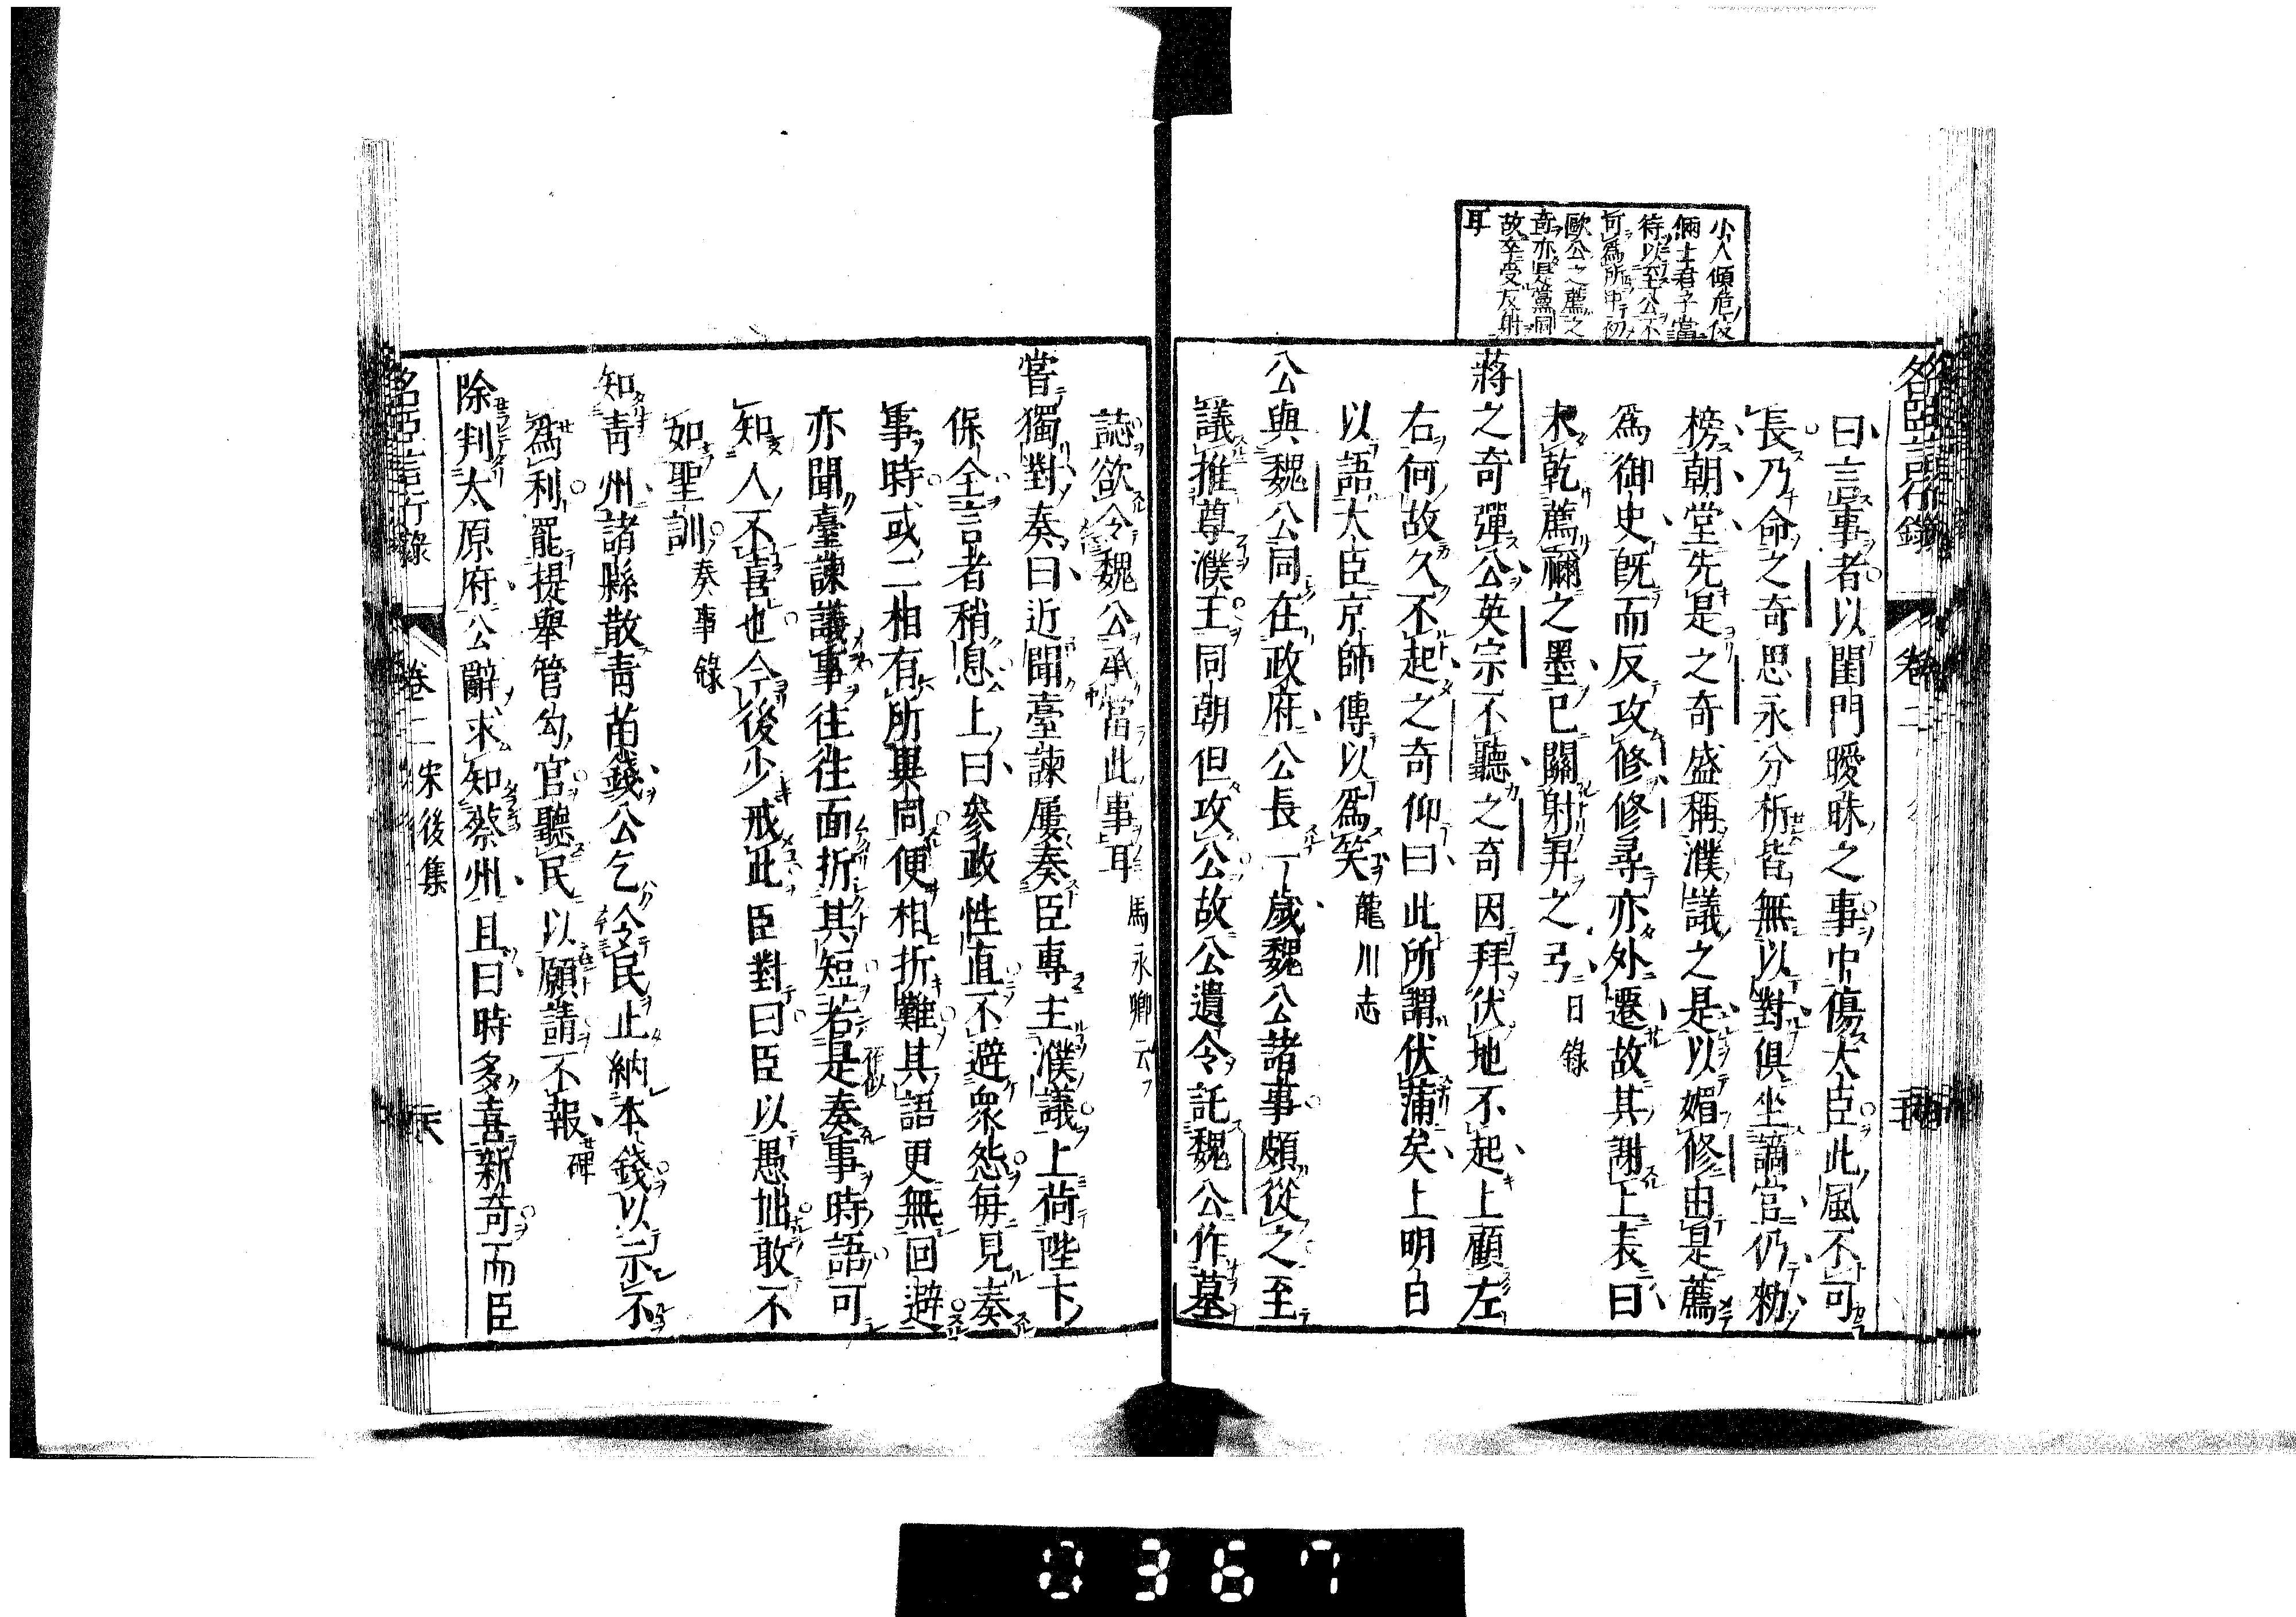 小人傾危伎
倆士君子當
待以至公不
可爲所中初
歐公之薦之
奇亦是黨同
故卒受反射
耳
名臣言行錄
卷二
曰言事者以閨門曖昧之事中傷大臣此風不可
長乃命之奇思永分析皆無以對俱坐謫官仍勑
榜朝堂先是之奇盛稱濮議之是以媚修由是薦
爲御史旣而反攻修修尋亦外遷故其謝上表曰
未乾薦禰之墨已關射羿之弓 日錄
蔣之奇彈公英宗不聽之奇因拜伏地不起上顧左
右何故久不起之奇仰曰此所謂伏蒲矣上明白
以語大臣京師傳以爲笑 龍川志
公與魏公同在政府公長一歲魏公諸事頗從之至
議推尊濮王同朝但攻公故公遺令託魏公作墓
誌欲令魏公承當此事耳 馬永卿云
嘗獨對奏曰近聞臺諫屢奏臣專主濮議上荷陛下
保全言者稍息上曰參政性直不避衆怨每見奏
事時或二相有所異同便相折難其語更無回避
亦聞臺諫議事往往面折其短若是奏事時語可
知人不喜也今後少戒此臣對曰臣以愚拙敢不
如聖訓 奏事錄
知靑州諸縣散靑苗錢公乞令民止納本錢以示不
爲利罷提舉管勾官聽民以願請不報 碑
除判太原府公辭求知蔡州且曰時多喜新奇而臣
名臣言行錄
卷二 宋後集